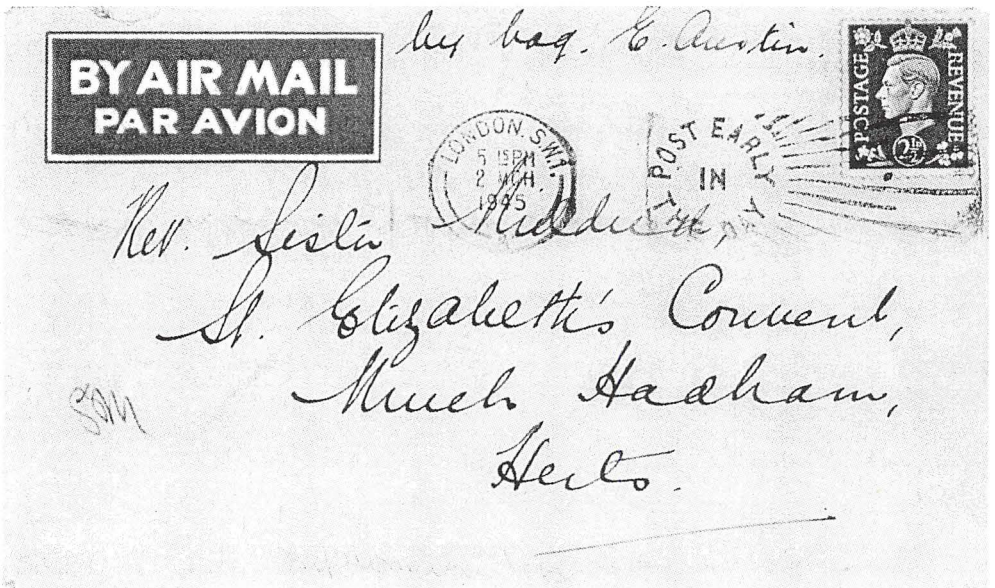 by bag. E. Austin.
BY AIR MAIL
PAR AVION
POSTAGE
REVENUE
2½D
LONDON. S.W.1.
5 15PM
2 MCH
1945
POST EARLY
IN
Rev. Sister
St. Elizabeth's Convent,
Much Hadham,
Herts.